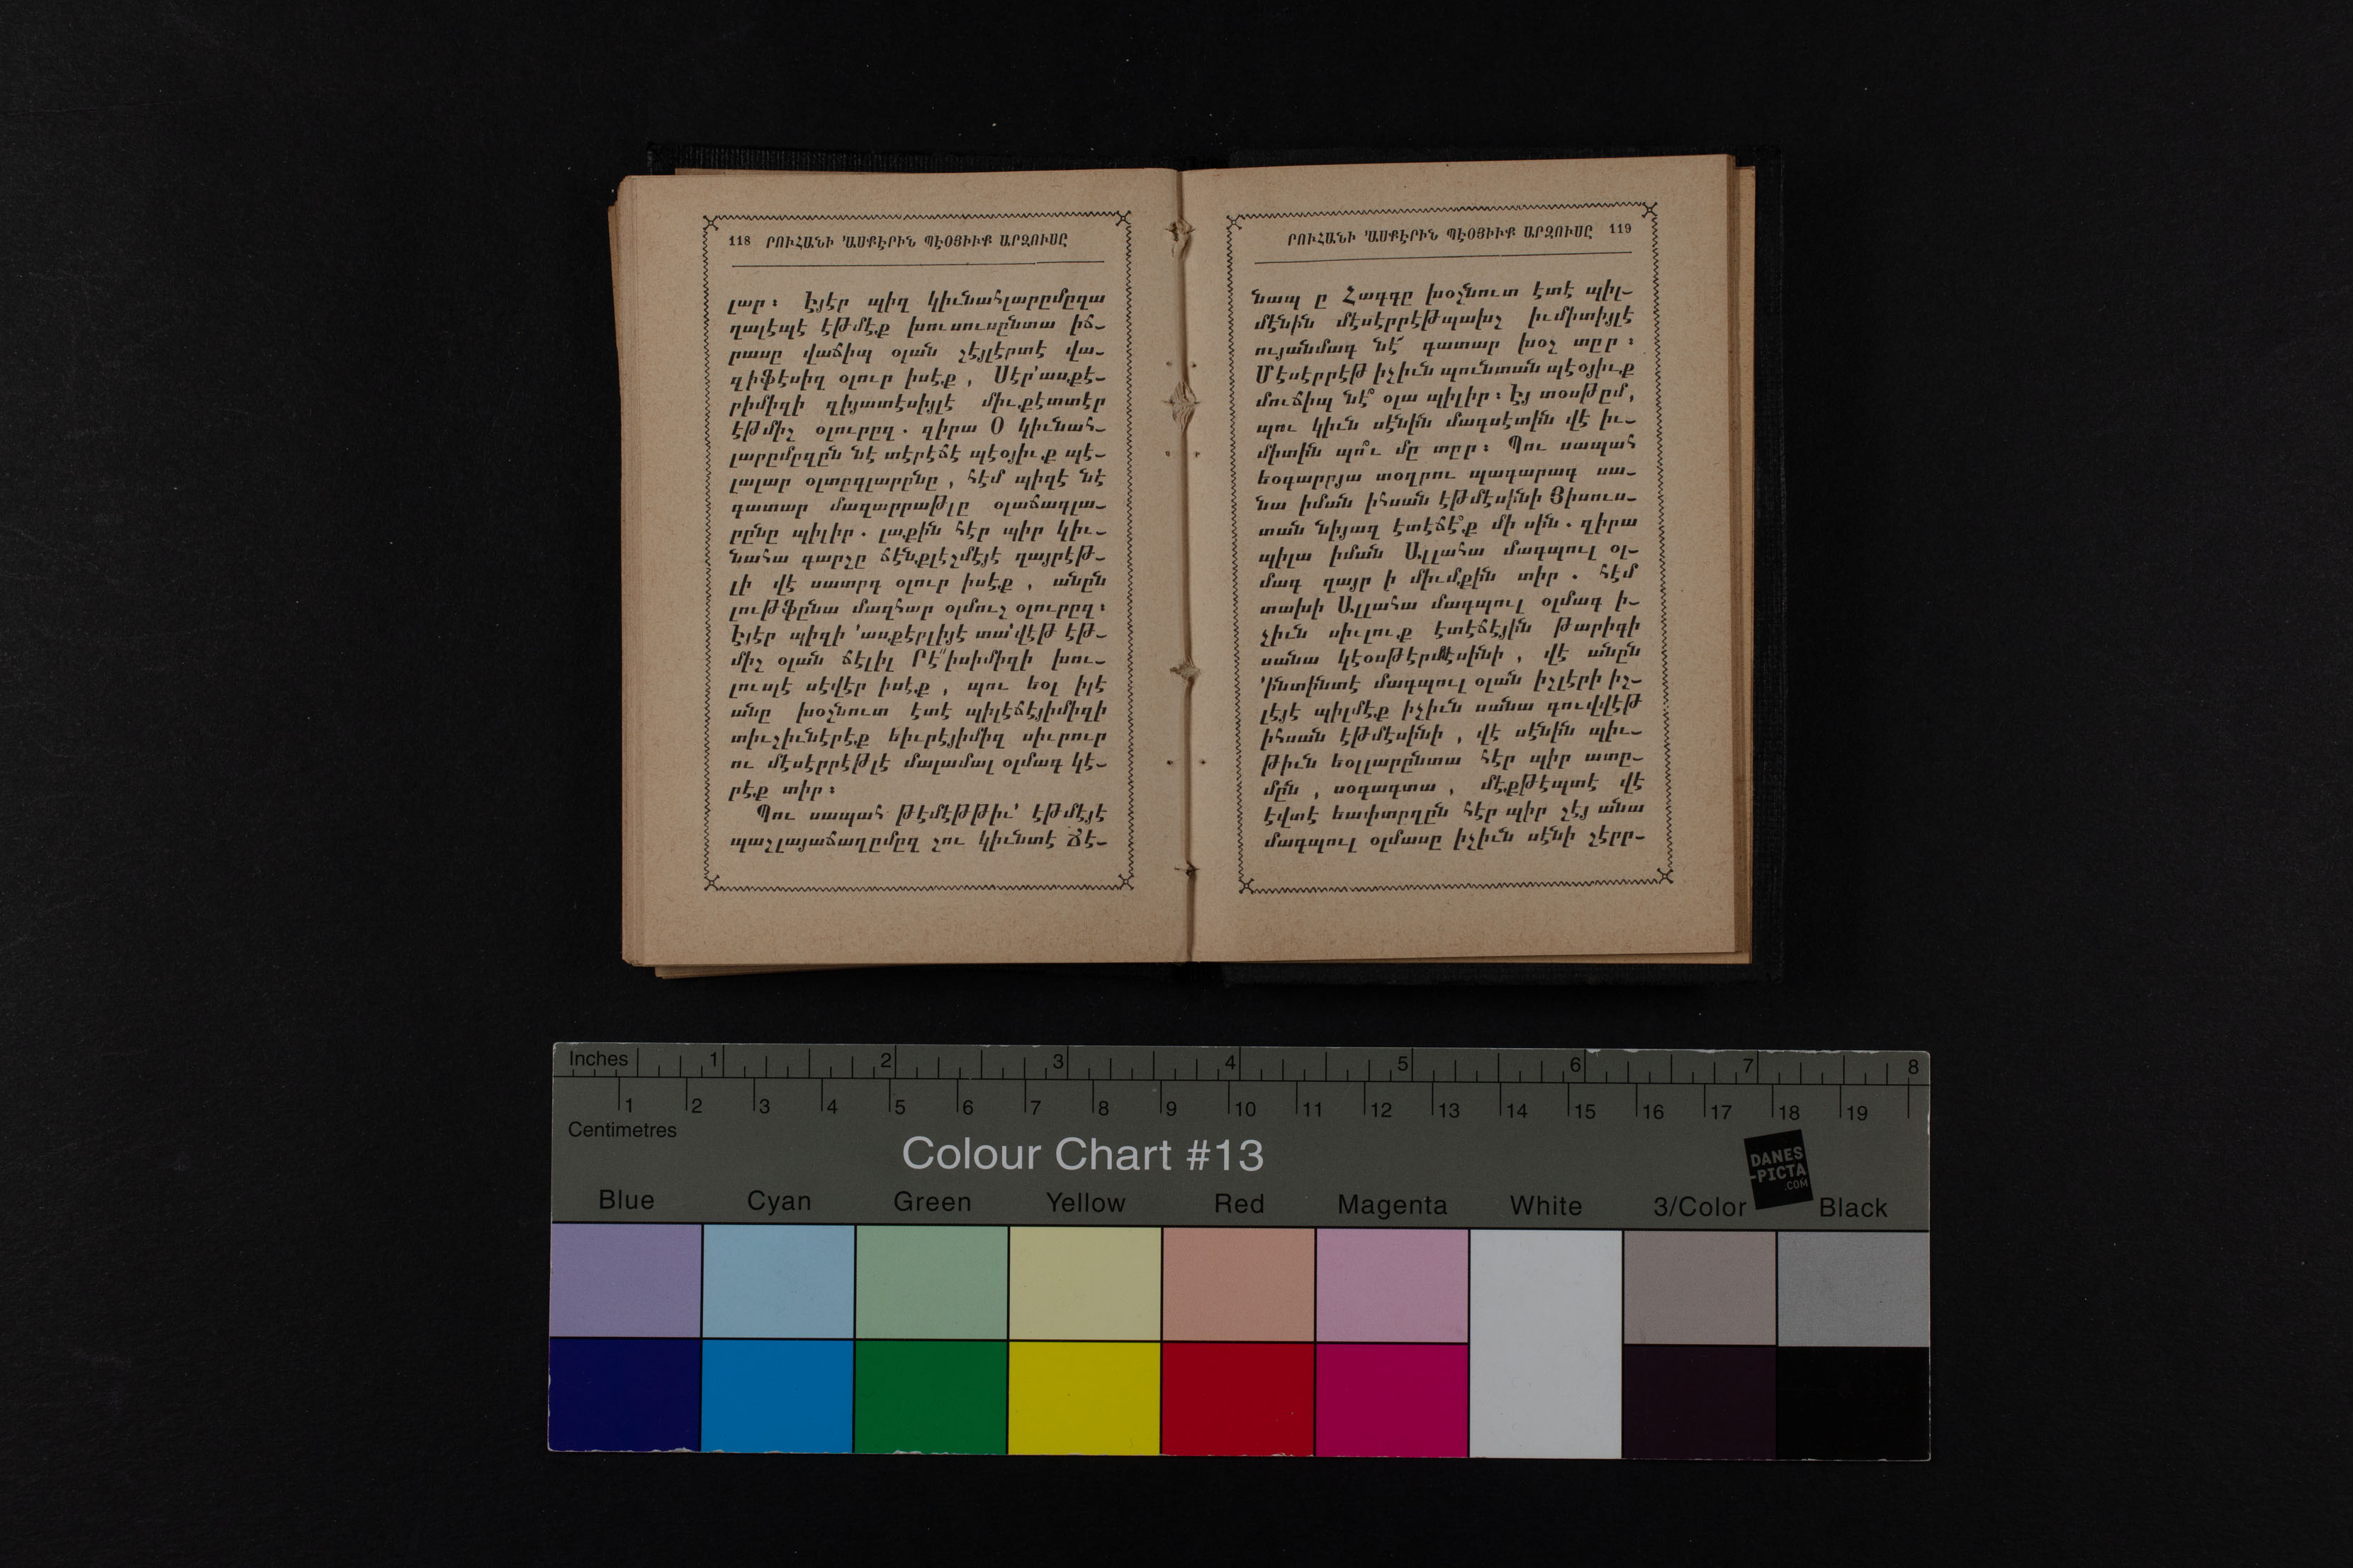 118 ՐՈՒՀԱՆԻ ՚ԱՍՔԷՐԻՆ ՊԷՕՅԻՒՔ ԱՐԶՈՒՍԸ
լար ։ Էյէր պիզ կիւնահլարըմըզա
ղալէպէ էթմէք խուսուսընտա իճ–
րասը վաճիպ օլան շէյլէրտէ վա–
զիֆէսիզ օլուր իսէք , Սէր՚ասքէ–
րիմիզի զիյատէսիյլէ միւքէտտէր
էթմիշ օլուրըզ . զիրա Օ կիւնահ–
լարըմըզըն նէ տէրէճէ պէօյիւք պէ–
լալար օլտըգլարընը , հէմ պիզէ նէ
գատար մազարրաթլը օլաճագլա–
րընը պիլիր . լաքին հէր պիր կիւ–
նահա գարշը ճէնքլէշմէյէ ղայրէթ–
լի վէ սատըգ օլուր իսէք , անըն
լութֆընա մազհար օլմուշ օլուրըզ ։
Էյէր պիզի ՚ասքէրլիյէ տա՚վէթ էթ–
միշ օլան ճէլիլ Րէ՚՚իսիմիզի խու–
լուսլէ սէվէր իսէք , պու եօլ իլէ
անը խօշնուտ էտէ պիլէճէյիմիզի
տիւշիւնէրէք եիւրէյիմիզ սիւրուր
ու մէսէրրէթլէ մալամալ օլմագ կէ–
րէք տիր ։
Պու սապահ թէմէթթիւ՚ էթմէյէ
պաշլայաճաղըմըզ շու կիւնտէ Ճէ–
ՐՈՒՀԱՆԻ ՚ԱՍՔԷՐԻՆ ՊԷՕՅԻՒՔ ԱՐԶՈՒՍԸ 119
նապ ը Հագգը խօշնուտ էտէ պիլ–
մէնին մէսէրրէթպախշ իւմիտիյլէ
ույանմագ նէ՜ գատար խօշ տըր ։
Մէսէրրէթ իչիւն պունտան պէօյիւք
մուճիպ նէ՞ օլա պիլիր ։ Էյ տօսթըմ ,
պու կիւն սէնին մագսէտին վէ իւ–
միտին պո՞ւ մը տըր ։ Պու սապահ
եօգարըյա տօղրու պագարագ սա–
նա իման իհսան էթմէսինի Յիսուս–
տան նիյազ էտէճէ՞ք մի սին . զիրա
պիլա իման Ալլահա մագպուլ օլ–
մագ ղայր ի միւմքին տիր . հէմ
տախի Ալլահա մագպուլ օլմագ ի–
չիւն սիւլուք էտէճէյին թարիգի
սանա կէօսթէրմէսինի , վէ անըն
՚ինտինտէ մագպուլ օլան իշլէրի իշ–
լէյէ պիլմէք իչիւն սանա գուվվէթ
իհսան էթմէսինի , վէ սէնին պիւ–
թիւն եօլլարընտա հէր պիր ատը–
մըն , սօգագտա , մէքթէպտէ վէ
էվտէ եափտըղըն հէր պիր շէյ անա
մագպուլ օլմասը իչիւն սէնի շէրր–
Inches 1 2 3 4 5 6 7 8
1 2 3 4 5 6 7 8 9 10 11 12 13 14 15 16 17 18 19
Centimetres
Colour Chart #13
DANES
-PICTA
.COM
Blue Cyan Green Yellow Red Magenta White 3/Color Black